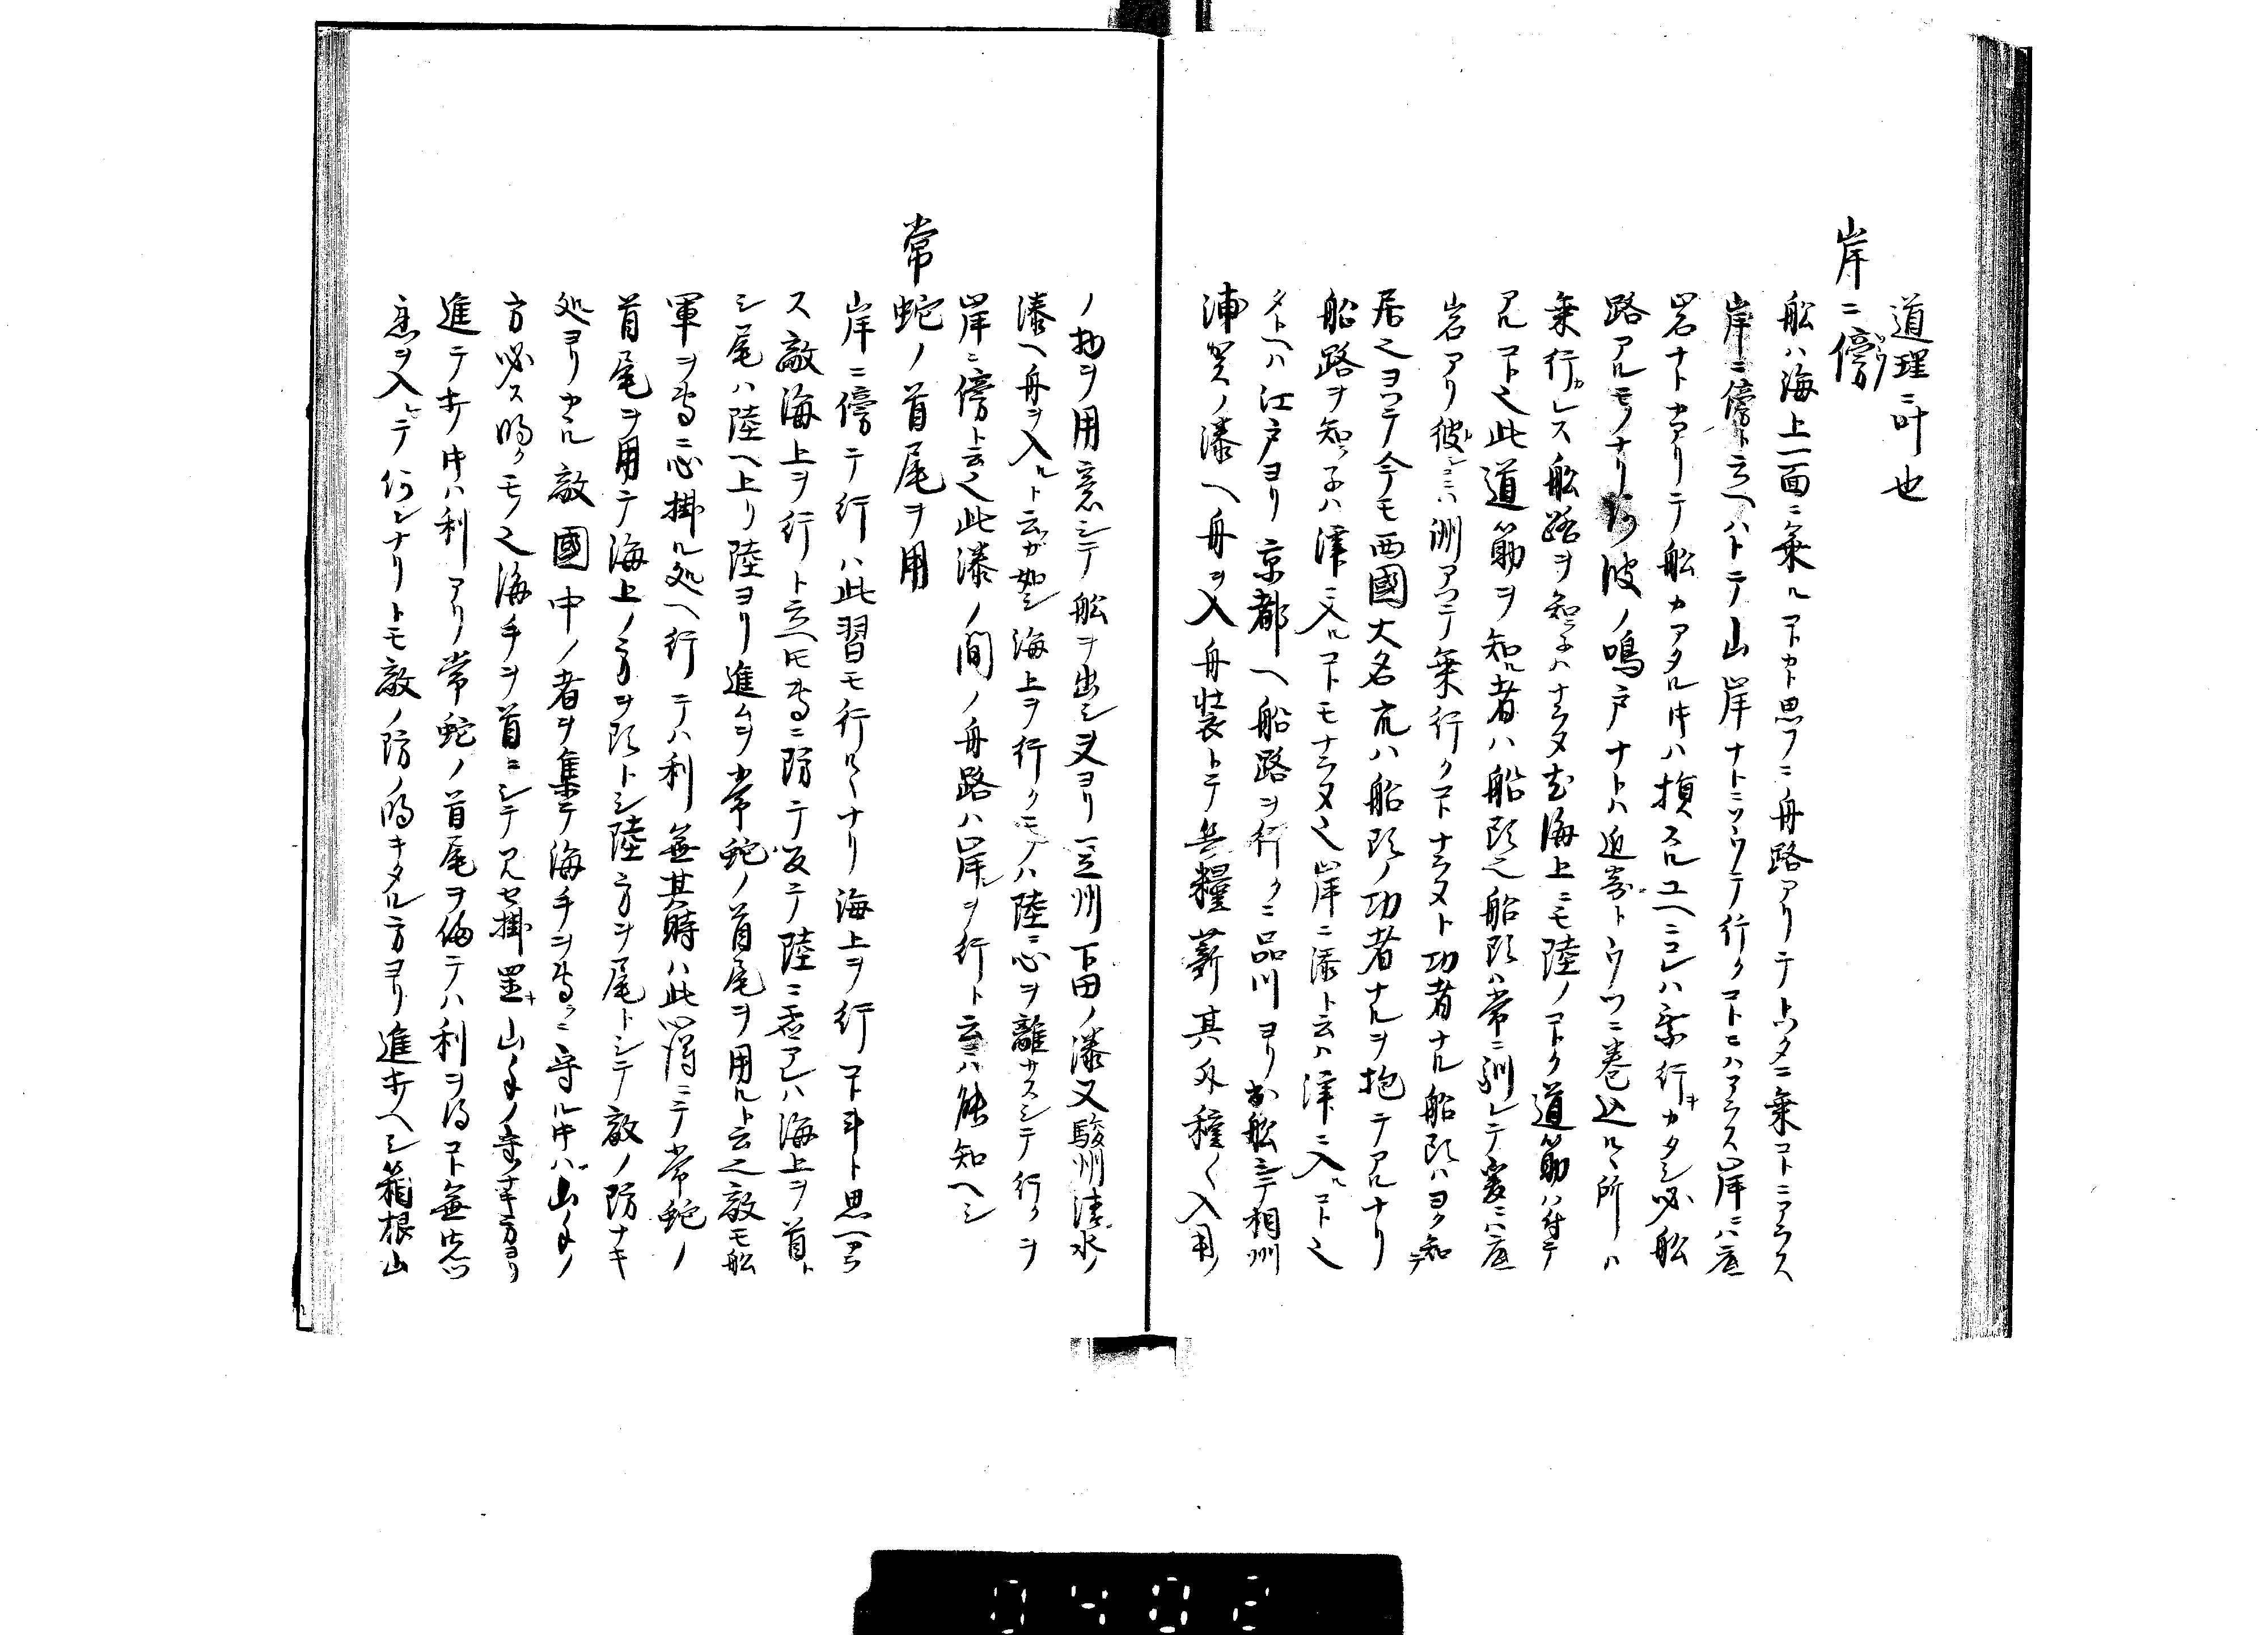 道理ニ叶也
岸ニ傍
舩ハ海上一面ニ乗ルコトカト思フニ舟路アリテトツクニ乗コトニアラス
岸ニ傍ト云ヘハトテ山岸ナトニツヽテ行クコトニハアラス岸ニハ底
岩ナトカアリテ舩カアタル時ハ損スルユヘニコレハ乗行カタシ必舩
路アルモノナリ阿波ノ鳴戸ナトハ近寄トウツニ巻込ル所ハ
乗行カレス舩路ヲ知子ハナラヌ也海上ニモ陸ノコトク道筋ハ付テ
アルコト也此道筋ヲ知ル者ハ船頭也船頭ハ常ニ馴レテ爰ニハ底
岩アリ彼コニハ洲アツテ乗行クコトナラヌト功者ナル船頭ハヨク知テ
居也ヨツテ今モ西國大名亢ハ船頭ノ功者ナルヲ抱テアルナリ
船路ヲ知子ハ津ニ入ルコトモナラヌ也岸ニ添ト云ハ津ニ入ルコト也
タトヘハ江戸ヨリ京都ヘ船路ヲ行クニ品川ヨリ出舩シテ相州
浦賀ノ湊ヘ舟ヲ入舟装トテ兵糧薪其外種〱入用
ノ物ヲ用意シテ舩ヲ出シ夫ヨリ豆州下田ノ湊又駿州清水ノ
湊ヘ舟ヲ入ルト云ガ如シ海上ヲ行クモノハ陸ニ心ヲ離サスシテ行クヲ
岸ニ傍ト云也此湊ノ間ノ舟路ハ岸ヲ行ト云ニハ能知ヘシ
常蛇ノ首尾ヲ用
岸ニ傍テ行ハ此習モ行ルヽナリ海上ヲ行コト斗ト思ヘカラ
ス敵海上ヲ行ト云ヘ𪜈専ニ防テ扨テ陸ニ虚アレハ海上ヲ首ト
シ尾ハ陸ヘ上リ陸ヨリ進ムヲ常蛇ノ首尾ヲ用ルト云也敵モ舩
軍ヲ専ニ心掛ル処ヘ行テハ利無其時ハ此習ニテ常蛇ノ
首尾ヲ用テ海上ノ方ヲ頭トシ陸方ヲ尾トシテ敵ノ防ナキ
処ヨリカヽル敵國中ノ者ヲ集テ海手ヲ専ラニ守ル時ハ山手ノ
方必ス明クモノ也海手ヲ首ニシテ見セ掛置キ山手ノ守ナキ方ヨリ
進テ行時ハ利アリ常蛇ノ首尾ヲ備テハ利ヲ得コト無恙
意ヲ入レテ何レナリトモ敵ノ防ノ明キタル方ヨリ進行ヘシ箱根山